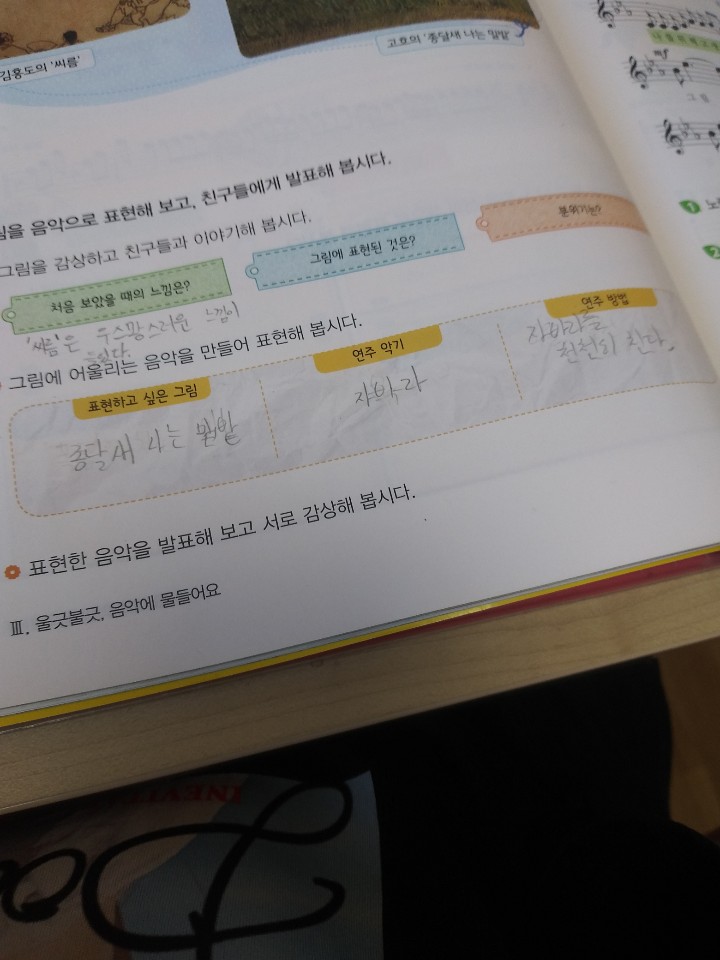 김홍도의 '씨름'
고흐의 '종달새 나는 밀밭'
음악으로 표현해 보고, 친구들에게 발표해 봅시다.
그림을 감상하고 친구들과 이야기해 봅시다.
처음 보았을 때의 느낌은?
그림에 표현된 것은?
분위기는?
'씨름'은 우스꽝스러운 느낌이
들었다.
그림에 어울리는 음악을 만들어 표현해 봅시다.
표현하고 싶은 그림
연주 악기
연주 방법
종달새 나는 밀밭
자바라
자바라를
천천히 친다.
표현한 음악을 발표해 보고 서로 감상해 봅시다.
Ⅲ. 울긋불긋, 음악에 물들어요
mf
1
2